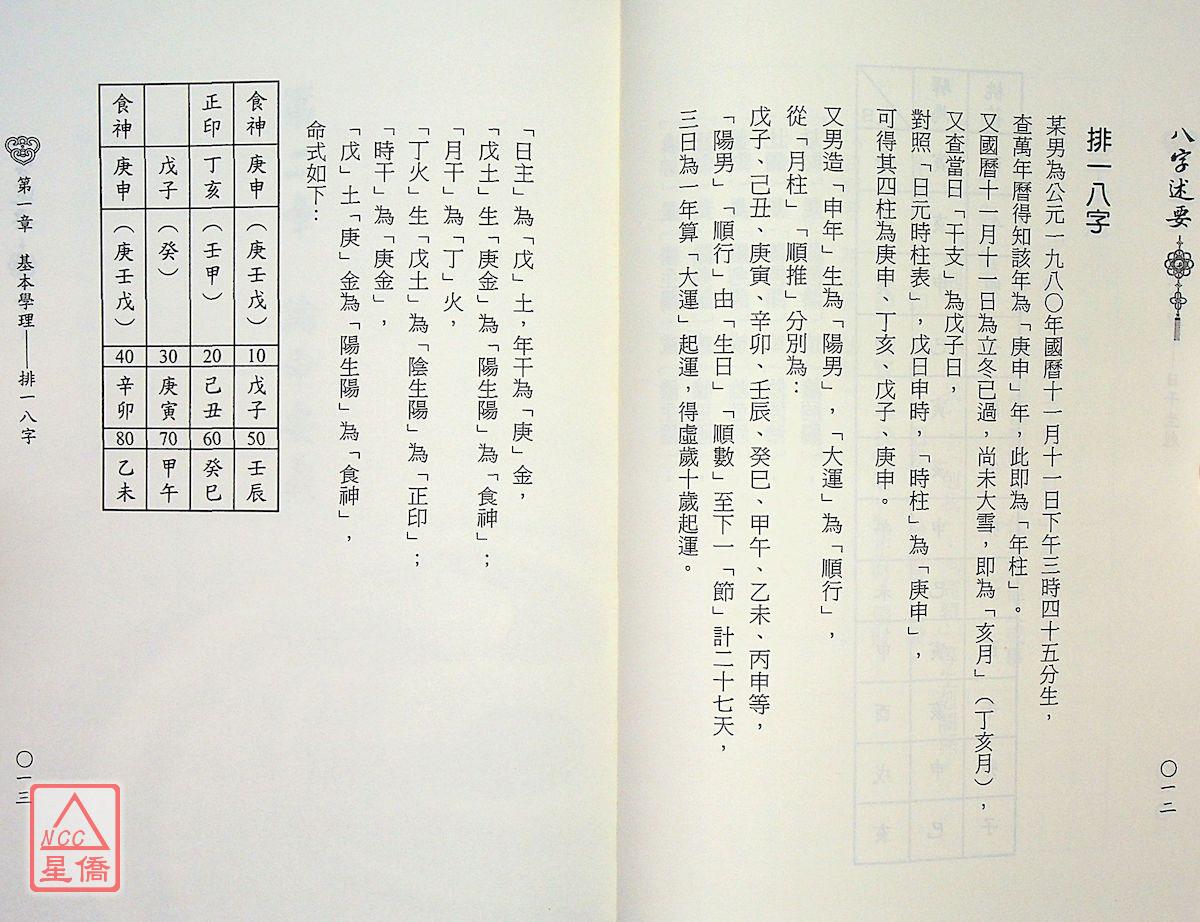 八字述要
〇一二
排一八字
某男為公元一九八〇年國曆十一月十一日下午三時四十五分生，
查萬年曆得知該年為「庚申」年，此即為「年柱」。
又國曆十一月十一日為立冬已過，尚未大雪，即為「亥月」（丁亥月），
又查當日「干支」為戊子日，
對照「日元時柱表」，戊日申時，「時柱」為「庚申」，
可得其四柱為庚申、丁亥、戊子、庚申。
又男造「申年」生為「陽男」，「大運」為「順行」，
從「月柱」「順推」分別為：
戊子、己丑、庚寅、辛卯、壬辰、癸巳、甲午、乙未、丙申等，
「陽男」「順行」由「生日」「順數」至下一「節」計二十七天，
三日為一年算「大運」起運，得虛歲十歲起運。
「日主」為「戊」土，年干為「庚」金，
「戊土」生「庚金」為「陽生陽」為「食神」；
「月干」為「丁」火，
「丁火」生「戊土」為「陰生陽」為「正印」；
「時干」為「庚金」，
「戊」土「庚」金為「陽生陽」為「食神」，
命式如下：
食神 庚申 （庚壬戊） 10 戊子 50 壬辰
正印 丁亥 （壬甲） 20 己丑 60 癸巳
戊子 （癸） 30 庚寅 70 甲午
食神 庚申 （庚壬戊） 40 辛卯 80 乙未
第一章 基本學理——排一八字
〇一三
NCC
星僑